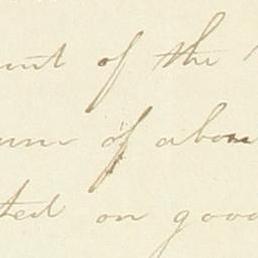 unt of the
um of abou
ted on good